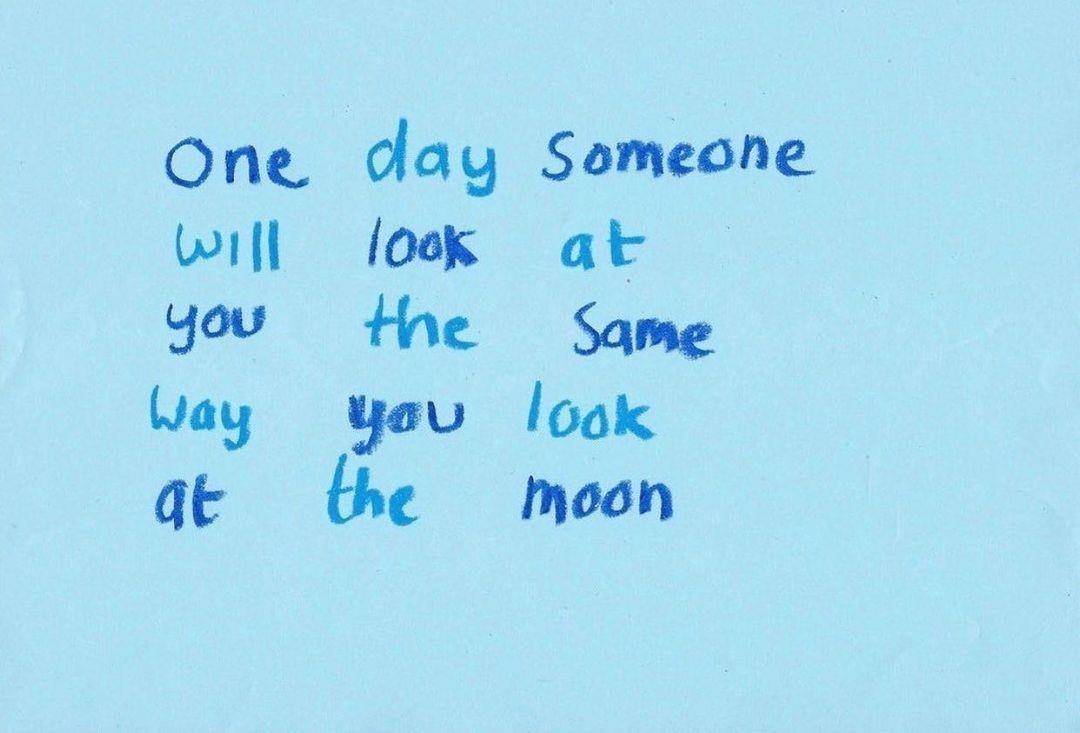 One day Someone
will look at
you the Same
way you look
at the moon